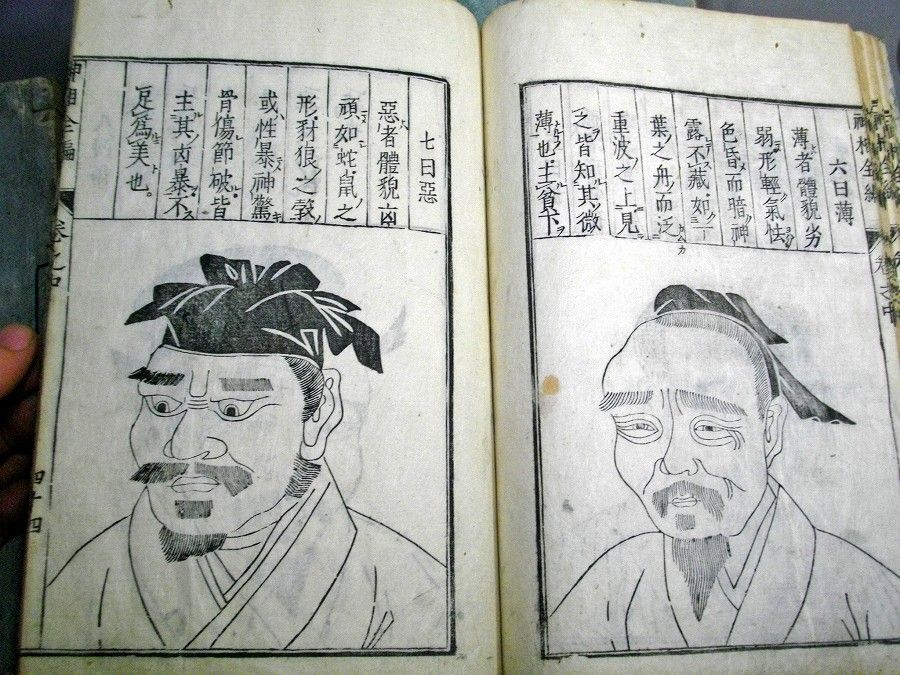 神相全編 卷之中
六曰薄
薄者體貌劣
弱形輕氣怯
色昏而暗神
露不藏如一
葉之舟而泛
重波之上見
之皆知其微
薄也主貧下
七曰惡
惡者體貌凶
頑如蛇鼠之
形豺狼之聲
或性暴神驚
骨傷節破皆
主其凶暴不
足爲美也。
神相全編 卷之中 四十四